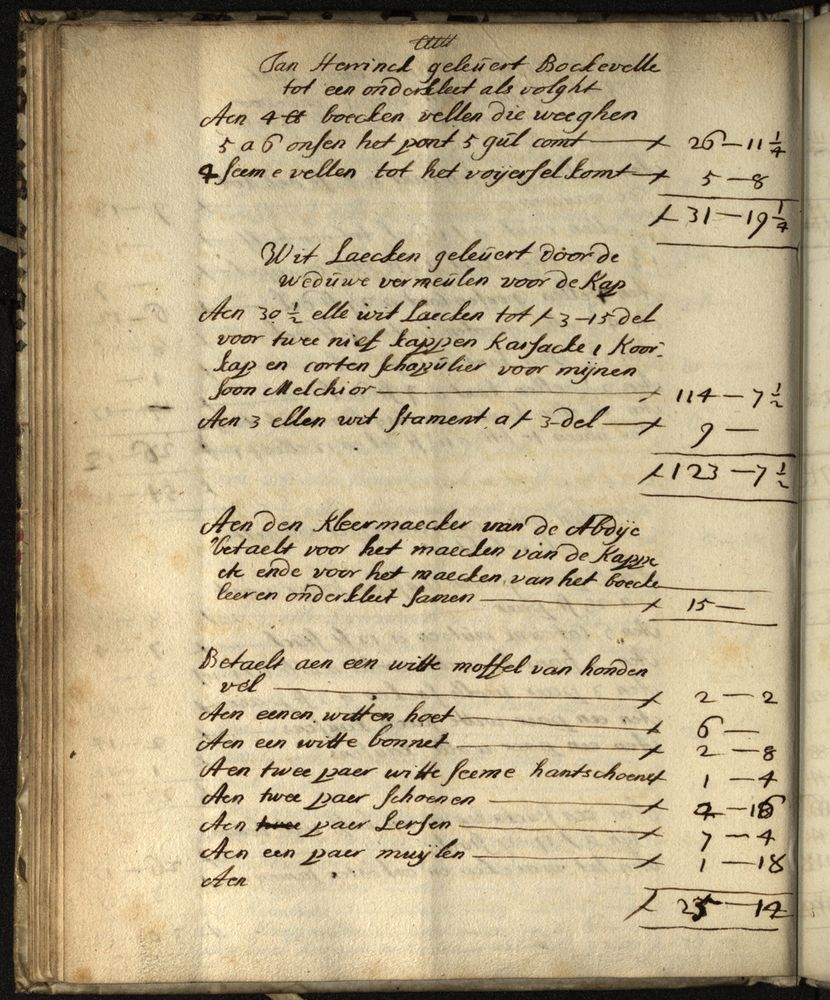 Jan Herrinck geleuert Bockevelle
tot een onderkleet als volght
Aen 4 boecken vellen die weeghen
5 a 6 onsen het pont 5 gul comt — f 26 — 11 1/4
4 seeme vellen tot het voijersel komt — f 5 — 8
f 31 — 19 1/4
Wit Laecken geleuert door de
weduwe vermeulen voor de Kap
Aen 30 1/2 elle wit Laecken tot f 3 — 15 del
voor twee kappen Karsacke 1 Koor
kap en corten schapulier voor mijnen
soon Melchior — f 114 — 7 1/2
Aen 3 ellen wit stament a f 3 — del — f 9 —
f 123 — 7 1/2
Aen den Kleermaecker van de Abdije
betaelt voor het maecken van de Kappe
etc ende voor het maecken van het boecke
leeren onderkleet samen — f 15 —
Betaelt aen een witte moffel van honden
vel — f 2 — 2
Aen eenen witten hoet — f 6 —
Aen een witte bonnet — f 2 — 8
Aen twee paer witte seeme hantschoenen f 1 — 4
Aen twee paer schoenen — f 4 — 16
Aen twee paer Lersen — f 7 — 4
Aen een paer muijlen — f 1 — 18
Aen
f 25 — 12